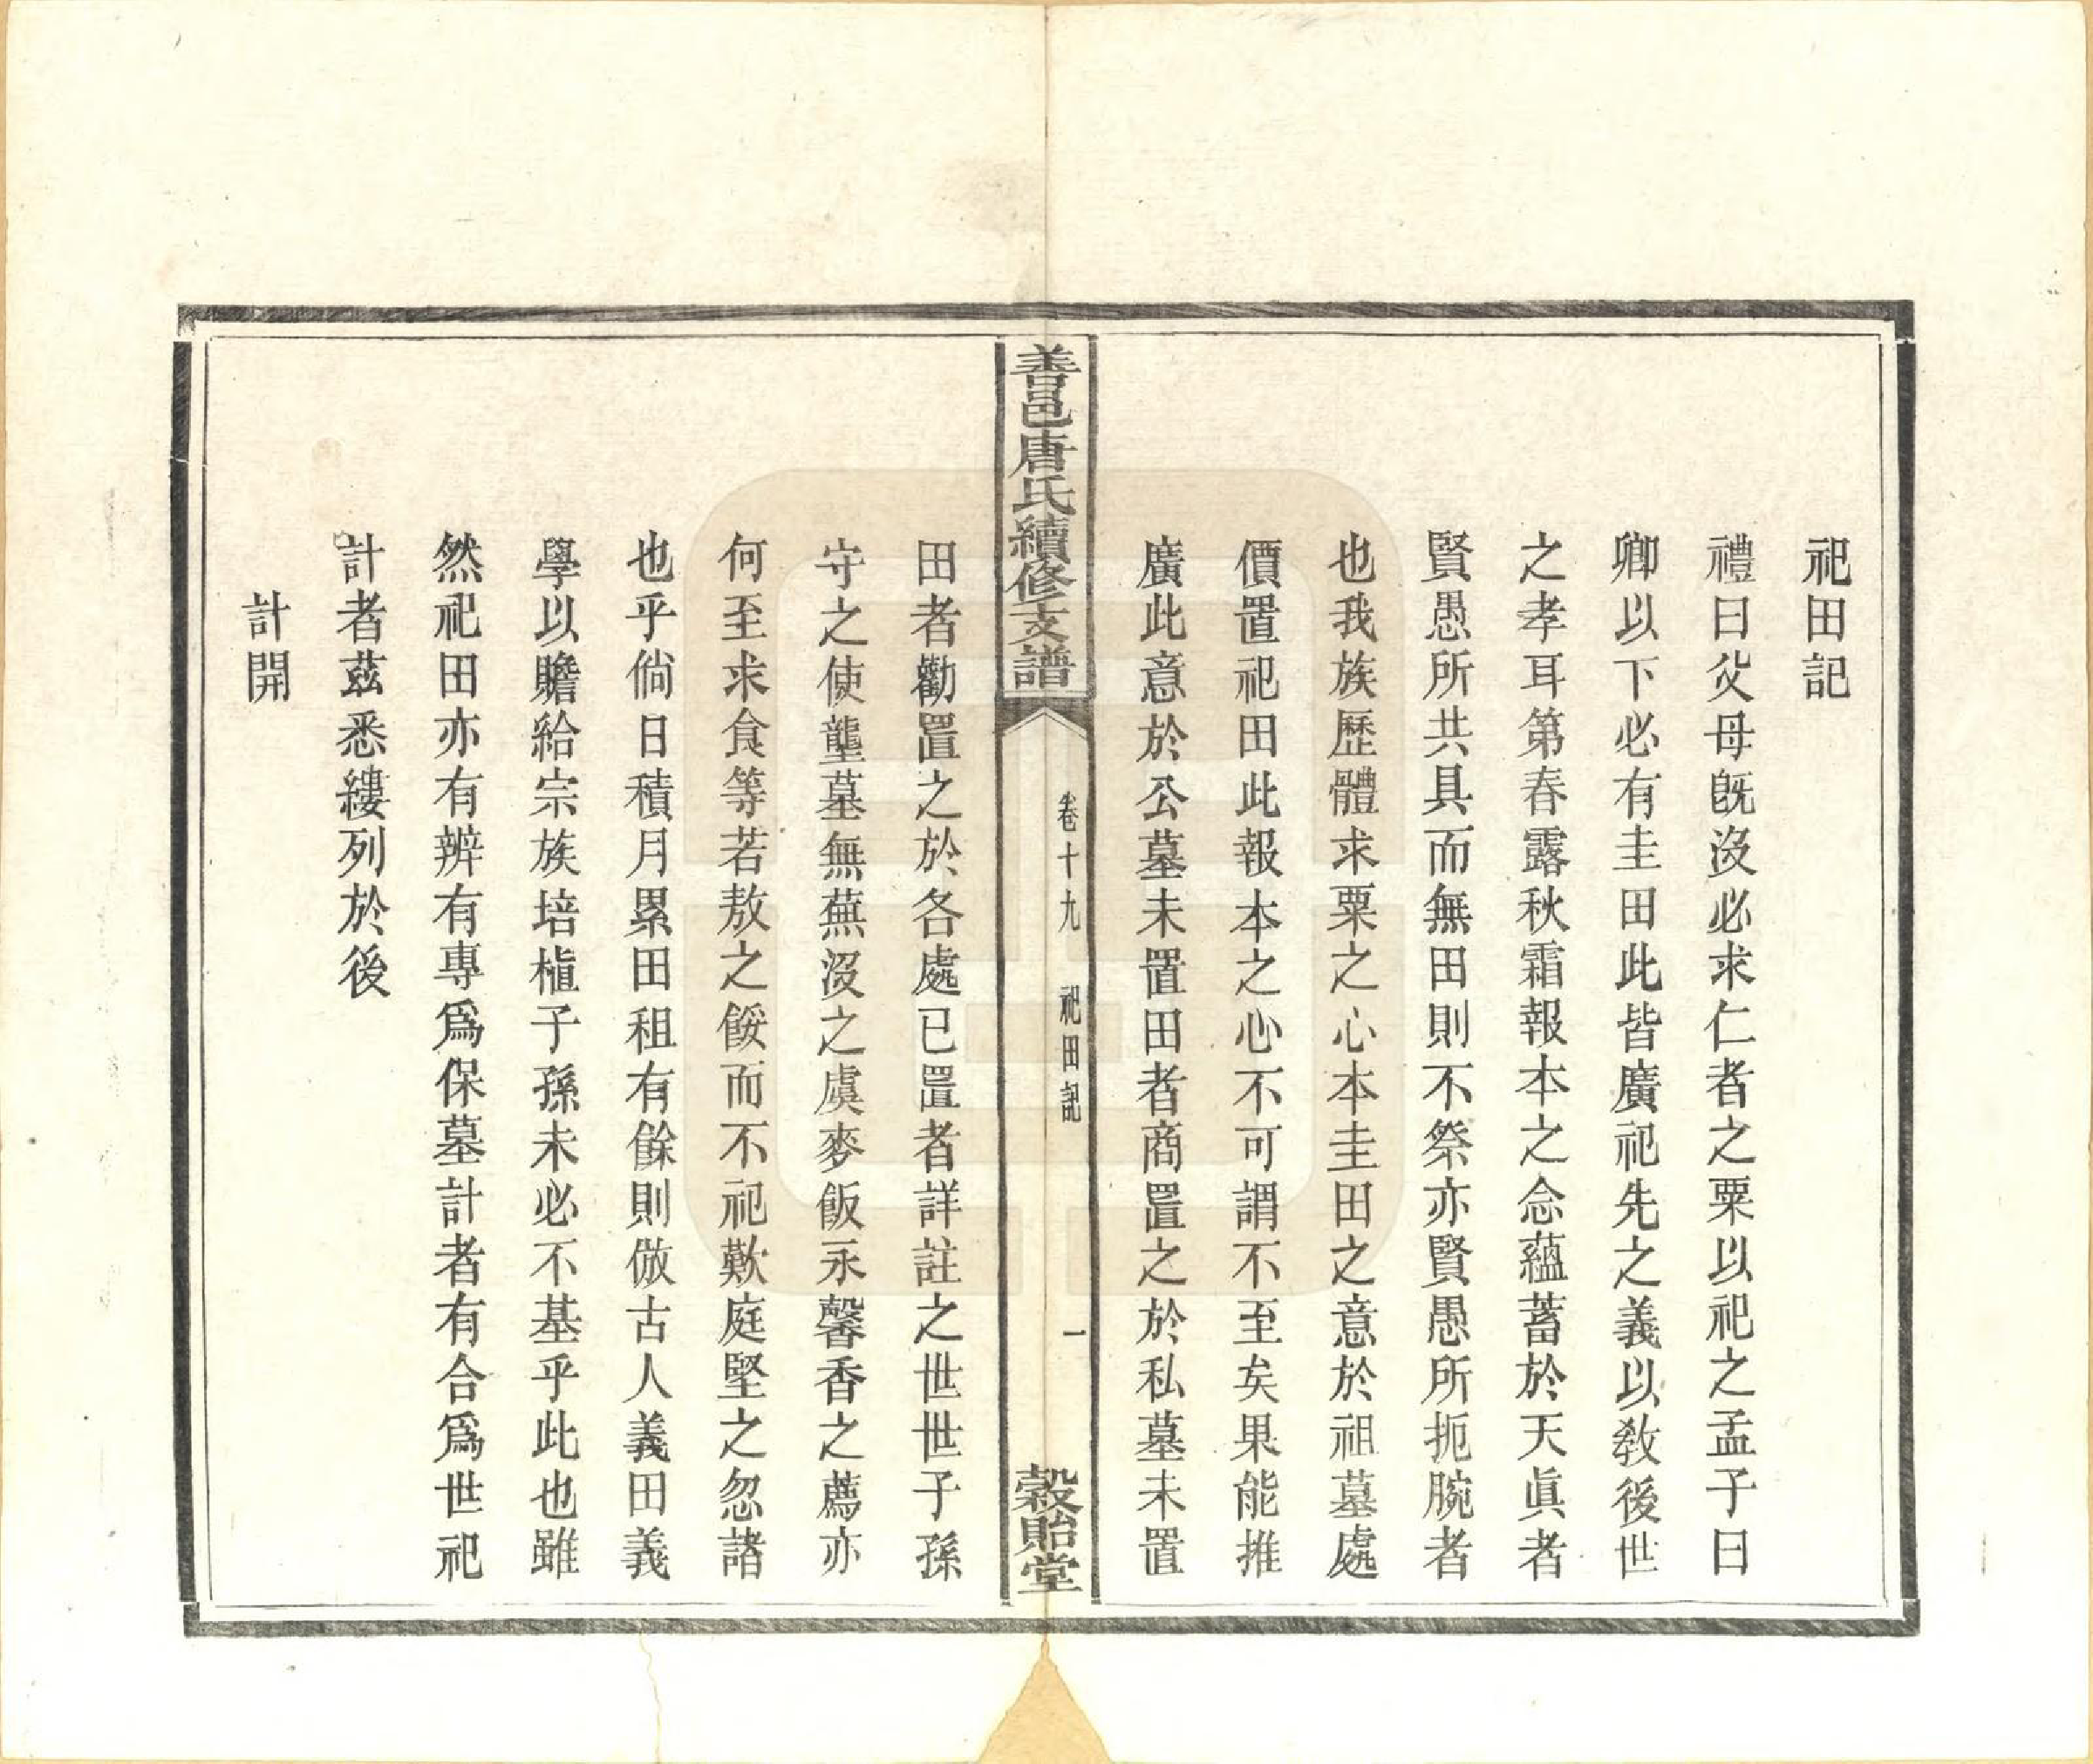 祀田記
禮曰父母旣沒必求仁者之粟以祀之孟子曰
卿以下必有圭田此皆廣祀先之義以敎後世
之孝耳第春露秋霜報本之念蘊蓄於天眞者
賢愚所共具而無田則不祭亦賢愚所扼腕者
也我族歷體求粟之心本圭田之意於祖墓處
價置祀田此報本之心不可謂不至矣果能推
廣此意於公墓未置田者商置之於私墓未置
善邑唐氏續修支譜
卷十九 祀田記
一
穀貽堂
田者勸置之於各處已置者詳註之世世子孫
守之使壟墓無蕪沒之虞麥飯永馨香之薦亦
何至求食等若敖之餒而不祀歎庭堅之忽諸
也乎倘日積月累田租有餘則倣古人義田義
學以贍給宗族培植子孫未必不基乎此也雖
然祀田亦有辨有專爲保墓計者有合爲世祀
計者茲悉縷列於後
計開